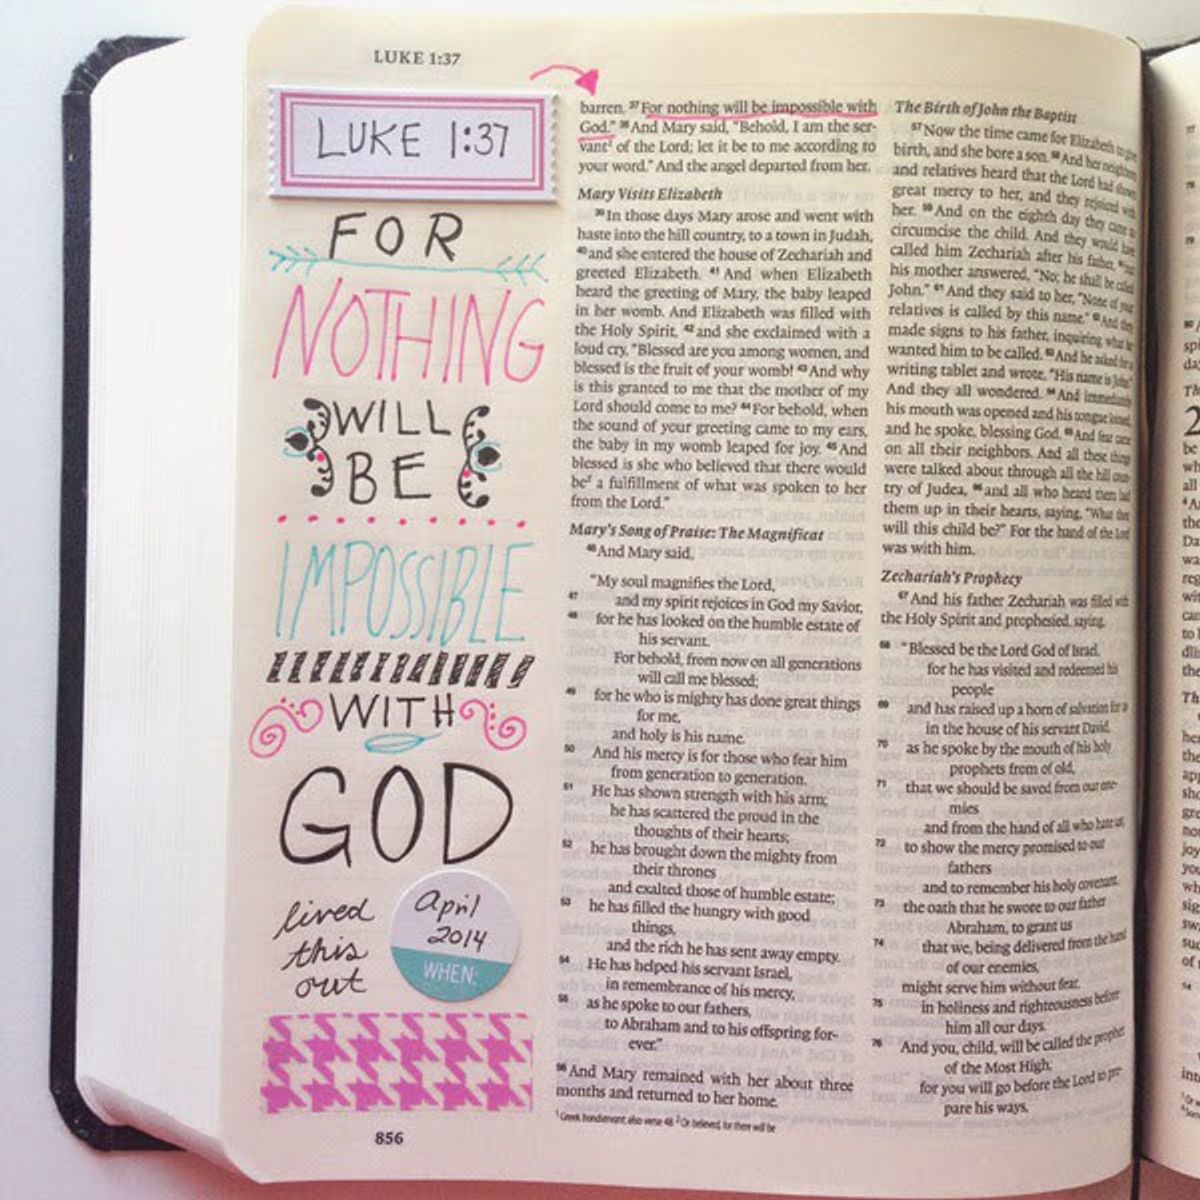 LUKE 1:37
LUKE 1:37
FOR
NOTHING
WILL
BE
IMPOSSIBLE
WITH
GOD
lived
this
out
April
2014
WHEN:
856
barren. 37 For nothing will be impossible with
God." 38 And Mary said, "Behold, I am the ser-
vant of the Lord; let it be to me according to
your word." And the angel departed from her.
Mary Visits Elizabeth
39 In those days Mary arose and went with
haste into the hill country, to a town in Judah,
40 and she entered the house of Zechariah and
greeted Elizabeth. 41 And when Elizabeth
heard the greeting of Mary, the baby leaped
in her womb. And Elizabeth was filled with
the Holy Spirit, 42 and she exclaimed with a
loud cry, "Blessed are you among women, and
blessed is the fruit of your womb! 43 And why
is this granted to me that the mother of my
Lord should come to me? 44 For behold, when
the sound of your greeting came to my ears,
the baby in my womb leaped for joy. 45 And
blessed is she who believed that there would
be a fulfillment of what was spoken to her
from the Lord."
Mary's Song of Praise: The Magnificat
46 And Mary said,
"My soul magnifies the Lord,
47 and my spirit rejoices in God my Savior,
48 for he has looked on the humble estate of
his servant.
For behold, from now on all generations
will call me blessed;
49 for he who is mighty has done great things
for me,
and holy is his name.
50 And his mercy is for those who fear him
from generation to generation.
51 He has shown strength with his arm;
he has scattered the proud in the
thoughts of their hearts;
52 he has brought down the mighty from
their thrones
and exalted those of humble estate;
53 he has filled the hungry with good
things,
and the rich he has sent away empty.
54 He has helped his servant Israel,
in remembrance of his mercy,
55 as he spoke to our fathers,
to Abraham and to his offspring for-
ever."
56 And Mary remained with her about three
months and returned to her home.
1 Greek bondservant; also verse 48 2 Or believed, for there will be
The Birth of John the Baptist
57 Now the time came for Elizabeth to give
birth, and she bore a son. 58 And her neighbors
and relatives heard that the Lord had shown
great mercy to her, and they rejoiced with
her. 59 And on the eighth day they came to
circumcise the child. And they would have
called him Zechariah after his father, 60 but
his mother answered, "No; he shall be called
John." 61 And they said to her, "None of your
relatives is called by this name." 62 And they
made signs to his father, inquiring what he
wanted him to be called. 63 And he asked for a
writing tablet and wrote, "His name is John."
And they all wondered. 64 And immediately
his mouth was opened and his tongue loosed,
and he spoke, blessing God. 65 And fear came
on all their neighbors. And all these things
were talked about through all the hill coun-
try of Judea, 66 and all who heard them laid
them up in their hearts, saying, "What then
will this child be?" For the hand of the Lord
was with him.
Zechariah's Prophecy
67 And his father Zechariah was filled with
the Holy Spirit and prophesied, saying,
68 "Blessed be the Lord God of Israel,
for he has visited and redeemed his
people
69 and has raised up a horn of salvation for us
in the house of his servant David,
70 as he spoke by the mouth of his holy
prophets from of old,
71 that we should be saved from our ene-
mies
and from the hand of all who hate us;
72 to show the mercy promised to our
fathers
and to remember his holy covenant,
73 the oath that he swore to our father
Abraham, to grant us
74 that we, being delivered from the hand
of our enemies,
might serve him without fear,
75 in holiness and righteousness before
him all our days.
76 And you, child, will be called the prophet
of the Most High;
for you will go before the Lord to pre-
pare his ways,